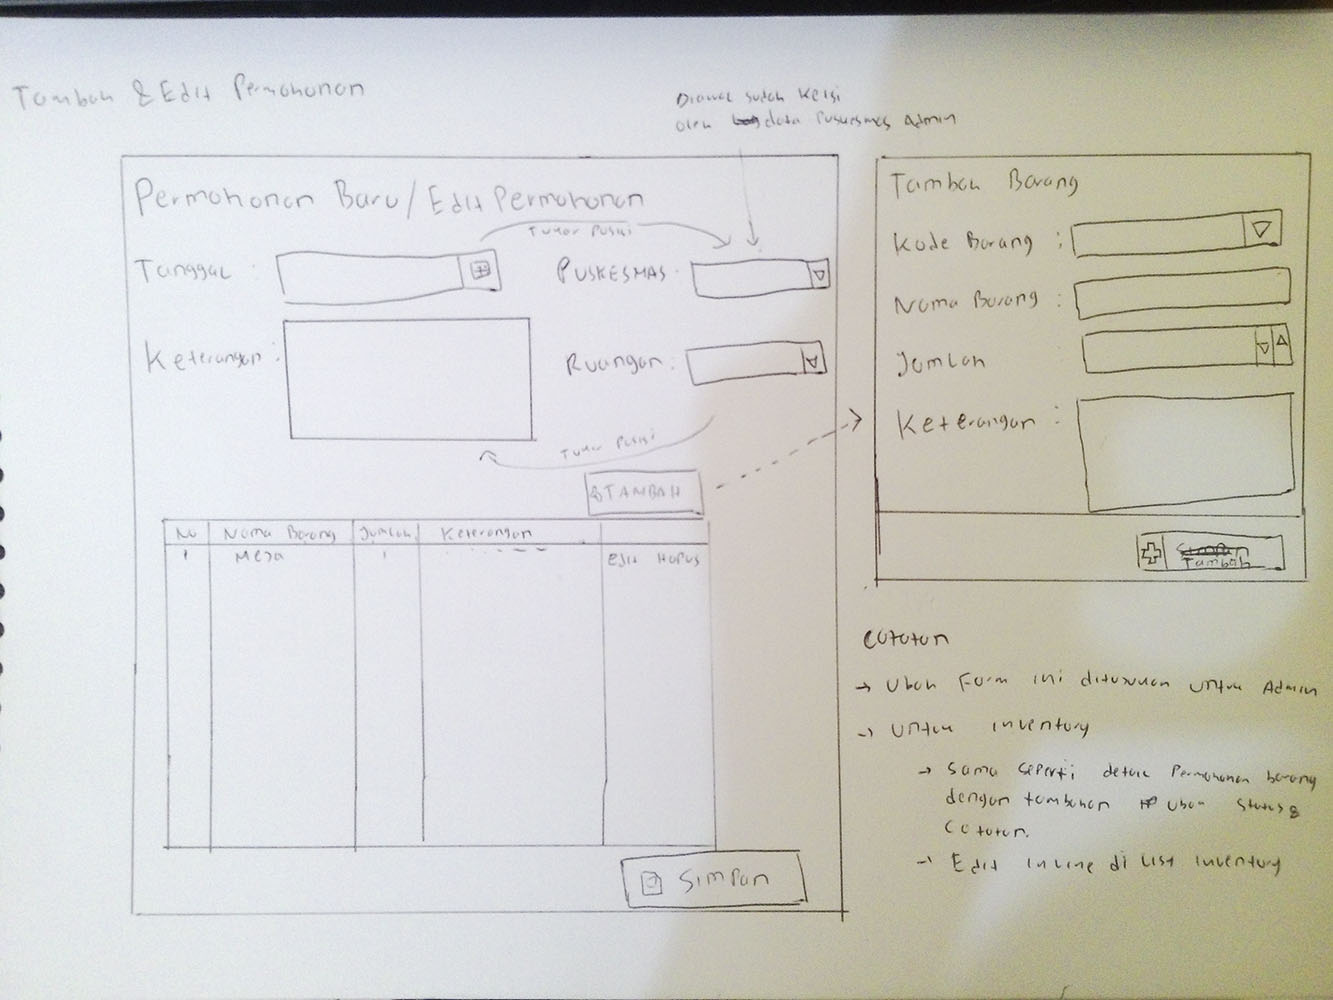 Tambah & Edit Permohonan
Diawal sudah keisi
oleh data Puskesmas Admin
Permohonan Baru / Edit Permohonan
Tukar Posisi
Tanggal :
PUSKESMAS :
Keterangan :
Ruangan :
Tukar Posisi
TAMBAH
No Nama Barang Jumlah Keterangan
1 Meja 1 Edit Hapus
Simpan
Tambah Barang
Kode Barang :
Nama Barang :
Jumlah
Keterangan :
Simpan
Tambah
Catatan
→ Ubah Form ini ditujukan untuk Admin
→ Untuk inventory
→ Sama seperti detail Permohonan barang
dengan tambahan ubah status &
Catatan.
→ Edit inline di list inventory